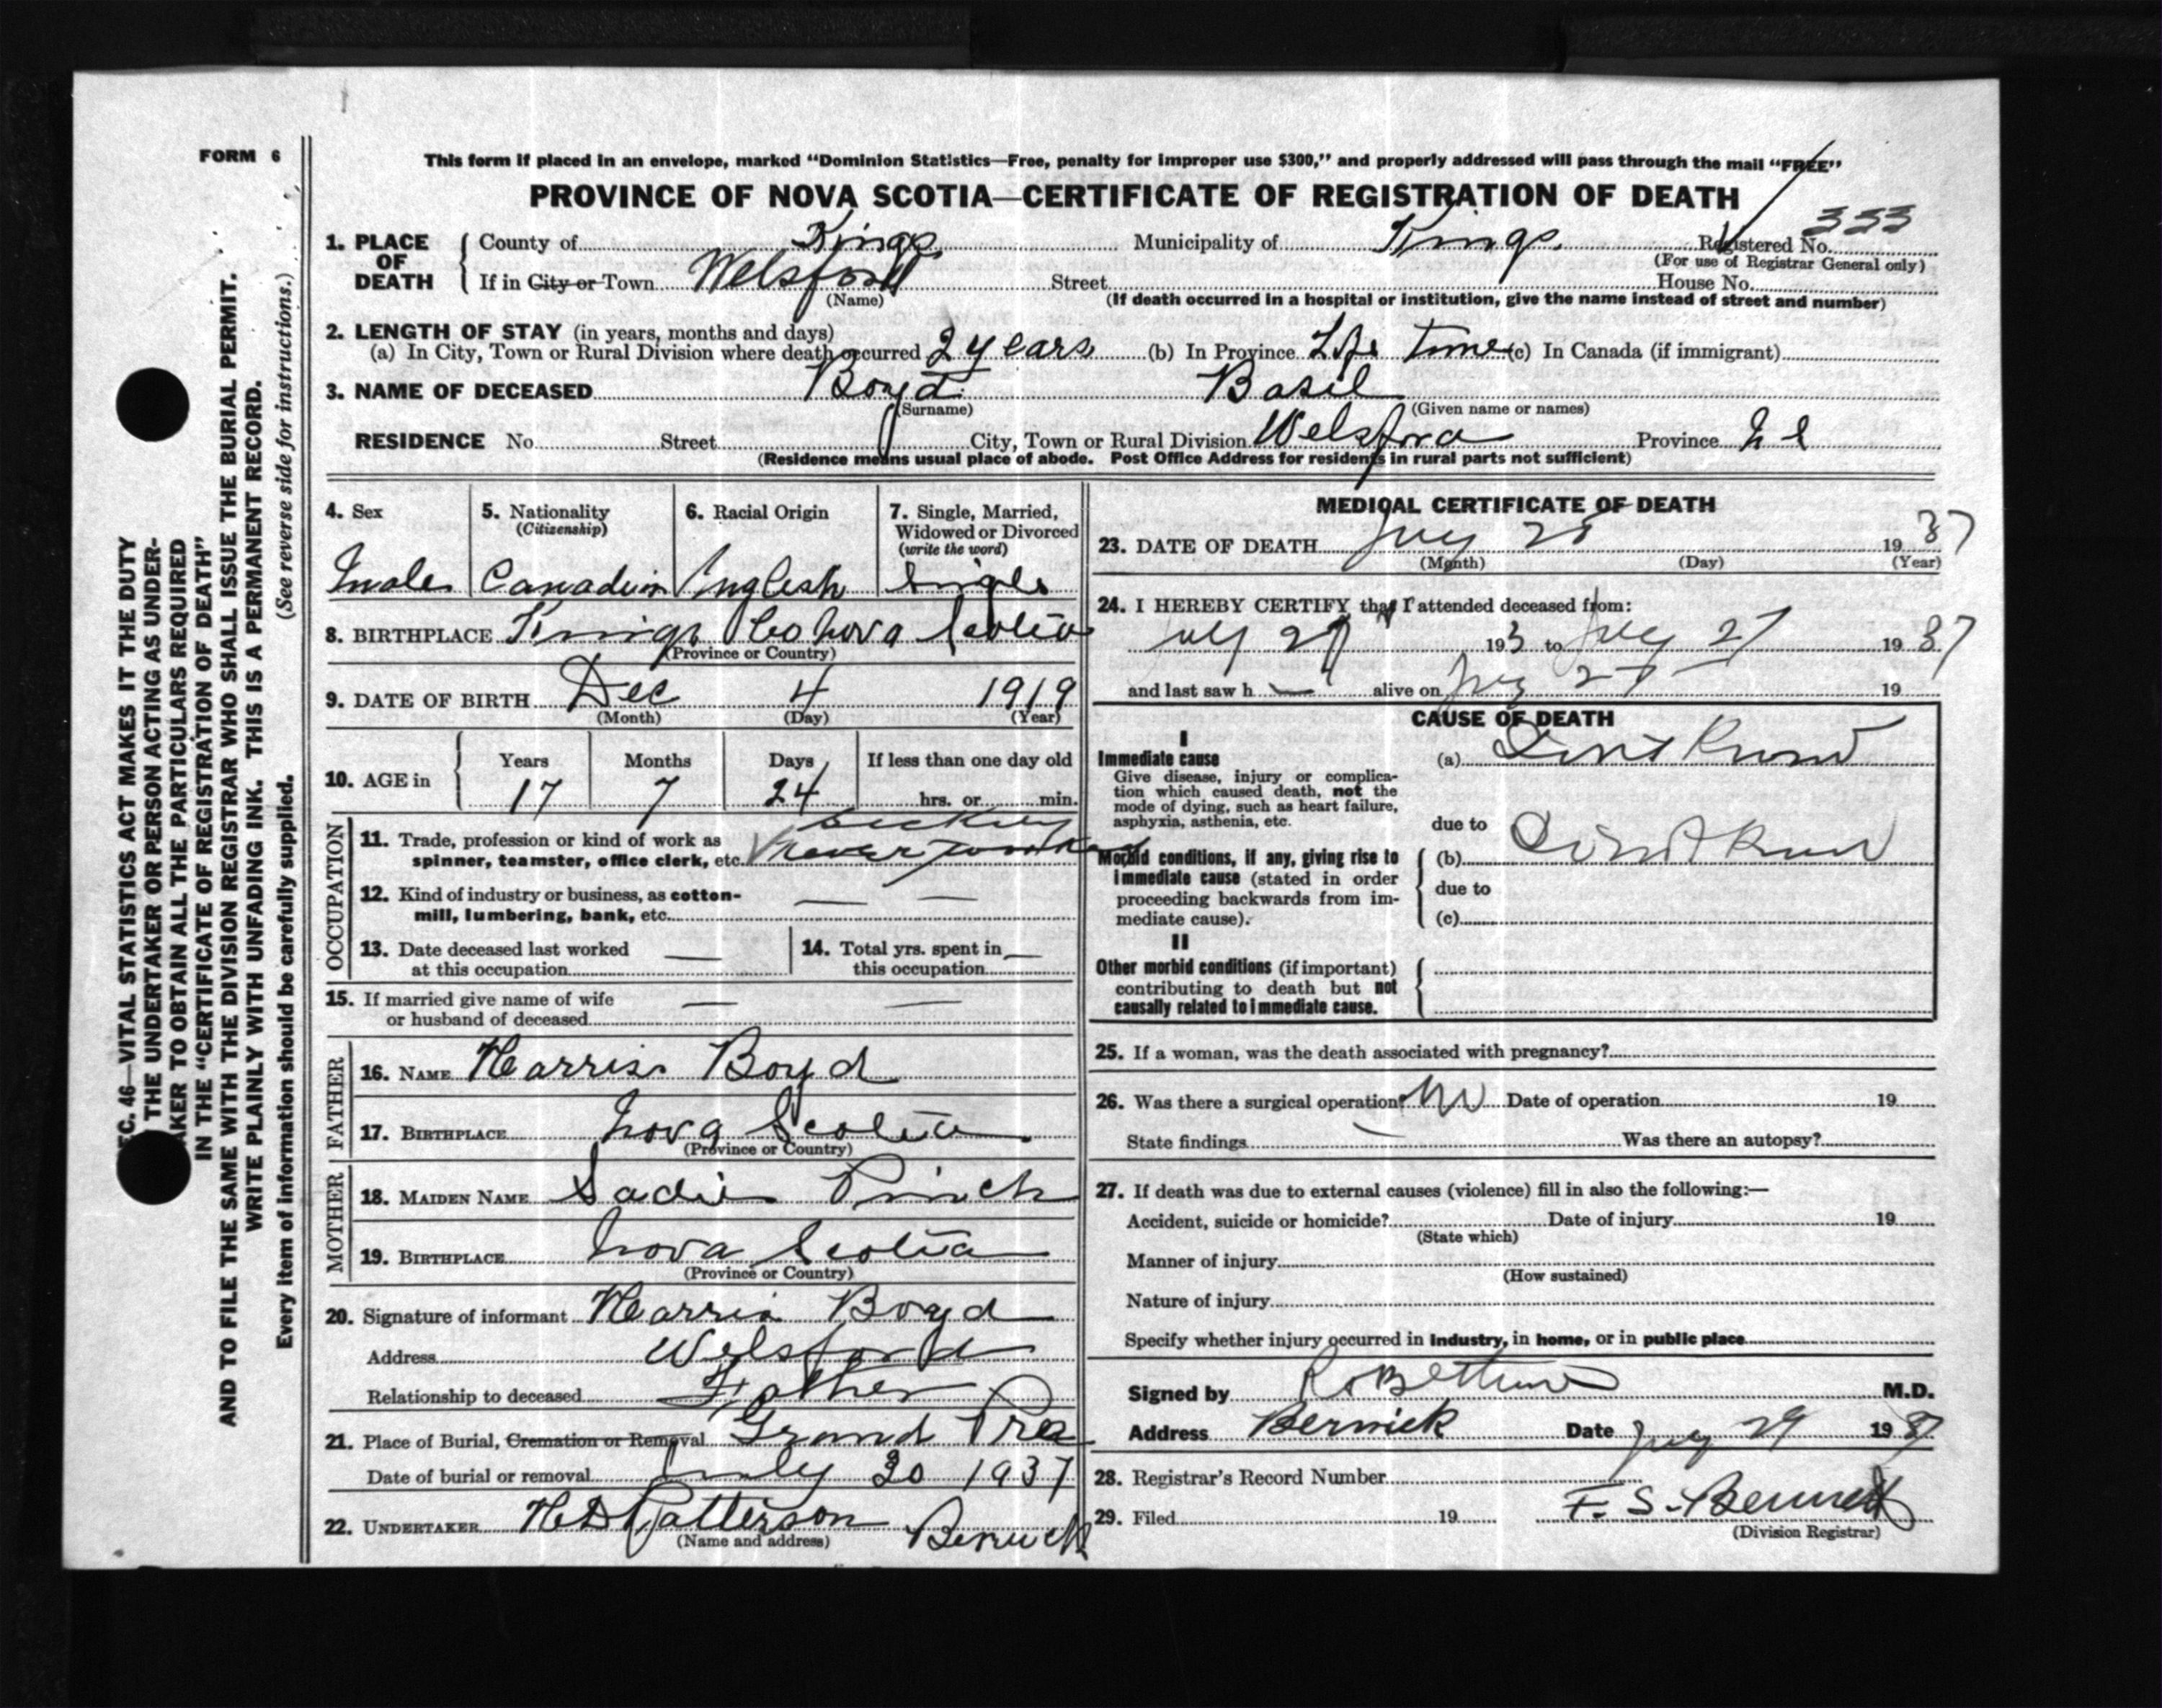 FORM 6
This form if placed in an envelope, marked "Dominion Statistics—Free, penalty for improper use $300," and properly addressed will pass through the mail "FREE"
PROVINCE OF NOVA SCOTIA—CERTIFICATE OF REGISTRATION OF DEATH
333
1. PLACE OF DEATH County of Kings Municipality of Kings Registered No.
(For use of Registrar General only)
If in City or Town Welsford Street House No.
(Name) (If death occurred in a hospital or institution, give the name instead of street and number)
2. LENGTH OF STAY (in years, months and days)
(a) In City, Town or Rural Division where death occurred 2 years (b) In Province Life time (c) In Canada (if immigrant)
3. NAME OF DECEASED Boyd Basil
(Surname) (Given name or names)
RESIDENCE No. Street City, Town or Rural Division Welsford Province N S
(Residence means usual place of abode. Post Office Address for residents in rural parts not sufficient)
4. Sex
male
5. Nationality
(Citizenship)
Canadian
6. Racial Origin
English
7. Single, Married,
Widowed or Divorced
(write the word)
Single
8. BIRTHPLACE Kings Co Nova Scotia
(Province or Country)
9. DATE OF BIRTH Dec 4 1919
(Month) (Day) (Year)
10. AGE in
Years Months Days If less than one day old
17 7 24 hrs. or min.
OCCUPATION
11. Trade, profession or kind of work as
spinner, teamster, office clerk, etc. never worked
12. Kind of industry or business, as cotton-
mill, lumbering, bank, etc. — —
13. Date deceased last worked
at this occupation —
14. Total yrs. spent in
this occupation —
15. If married give name of wife
or husband of deceased — —
FATHER
16. NAME Harris Boyd
17. BIRTHPLACE Nova Scotia
(Province or Country)
MOTHER
18. MAIDEN NAME Sadie
19. BIRTHPLACE Nova Scotia
(Province or Country)
20. Signature of informant Harris Boyd
Address Welsford
Relationship to deceased Father
21. Place of Burial, Cremation or Removal Grand Pre
Date of burial or removal July 30 1937
22. UNDERTAKER H D Patterson Berwick
(Name and address)
MEDICAL CERTIFICATE OF DEATH
23. DATE OF DEATH July 28 1937
(Month) (Day) (Year)
24. I HEREBY CERTIFY that I attended deceased from:
July 27 193 to July 27 1937
and last saw h — alive on July 27 19
CAUSE OF DEATH
I
Immediate cause
Give disease, injury or complica-
tion which caused death, not the
mode of dying, such as heart failure,
asphyxia, asthenia, etc.
(a) Dont Know
due to
Morbid conditions, if any, giving rise to
immediate cause (stated in order
proceeding backwards from im-
mediate cause).
(b) Dont Know
due to
(c)
II
Other morbid conditions (if important)
contributing to death but not
causally related to immediate cause.
25. If a woman, was the death associated with pregnancy?
26. Was there a surgical operation? No Date of operation 19
State findings — Was there an autopsy?
27. If death was due to external causes (violence) fill in also the following:—
Accident, suicide or homicide? Date of injury 19
(State which)
Manner of injury
(How sustained)
Nature of injury
Specify whether injury occurred in industry, in home, or in public place
Signed by M.D.
Address Berwick Date July 29 1937
28. Registrar's Record Number
29. Filed 19 F. S. Bennett
(Division Registrar)
EC. 46—VITAL STATISTICS ACT MAKES IT THE DUTY
THE UNDERTAKER OR PERSON ACTING AS UNDER-
AKER TO OBTAIN ALL THE PARTICULARS REQUIRED
IN THE "CERTIFICATE OF REGISTRATION OF DEATH"
AND TO FILE THE SAME WITH THE DIVISION REGISTRAR WHO SHALL ISSUE THE BURIAL PERMIT.
WRITE PLAINLY WITH UNFADING INK. THIS IS A PERMANENT RECORD.
Every item of information should be carefully supplied. (See reverse side for instructions.)